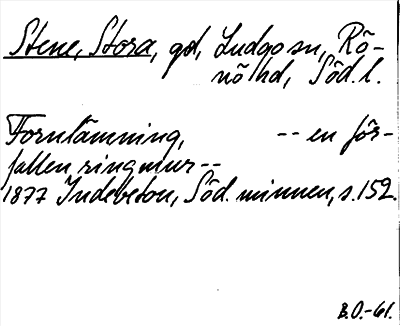 Stene, Stora, gd, Ludgo sn, Rö-
nö hd, Söd. l.
Fornlämning, -- en för-
fallen ringmur --
1877 Indebetou, Söd. minnen, s. 152.
B.O.-61.